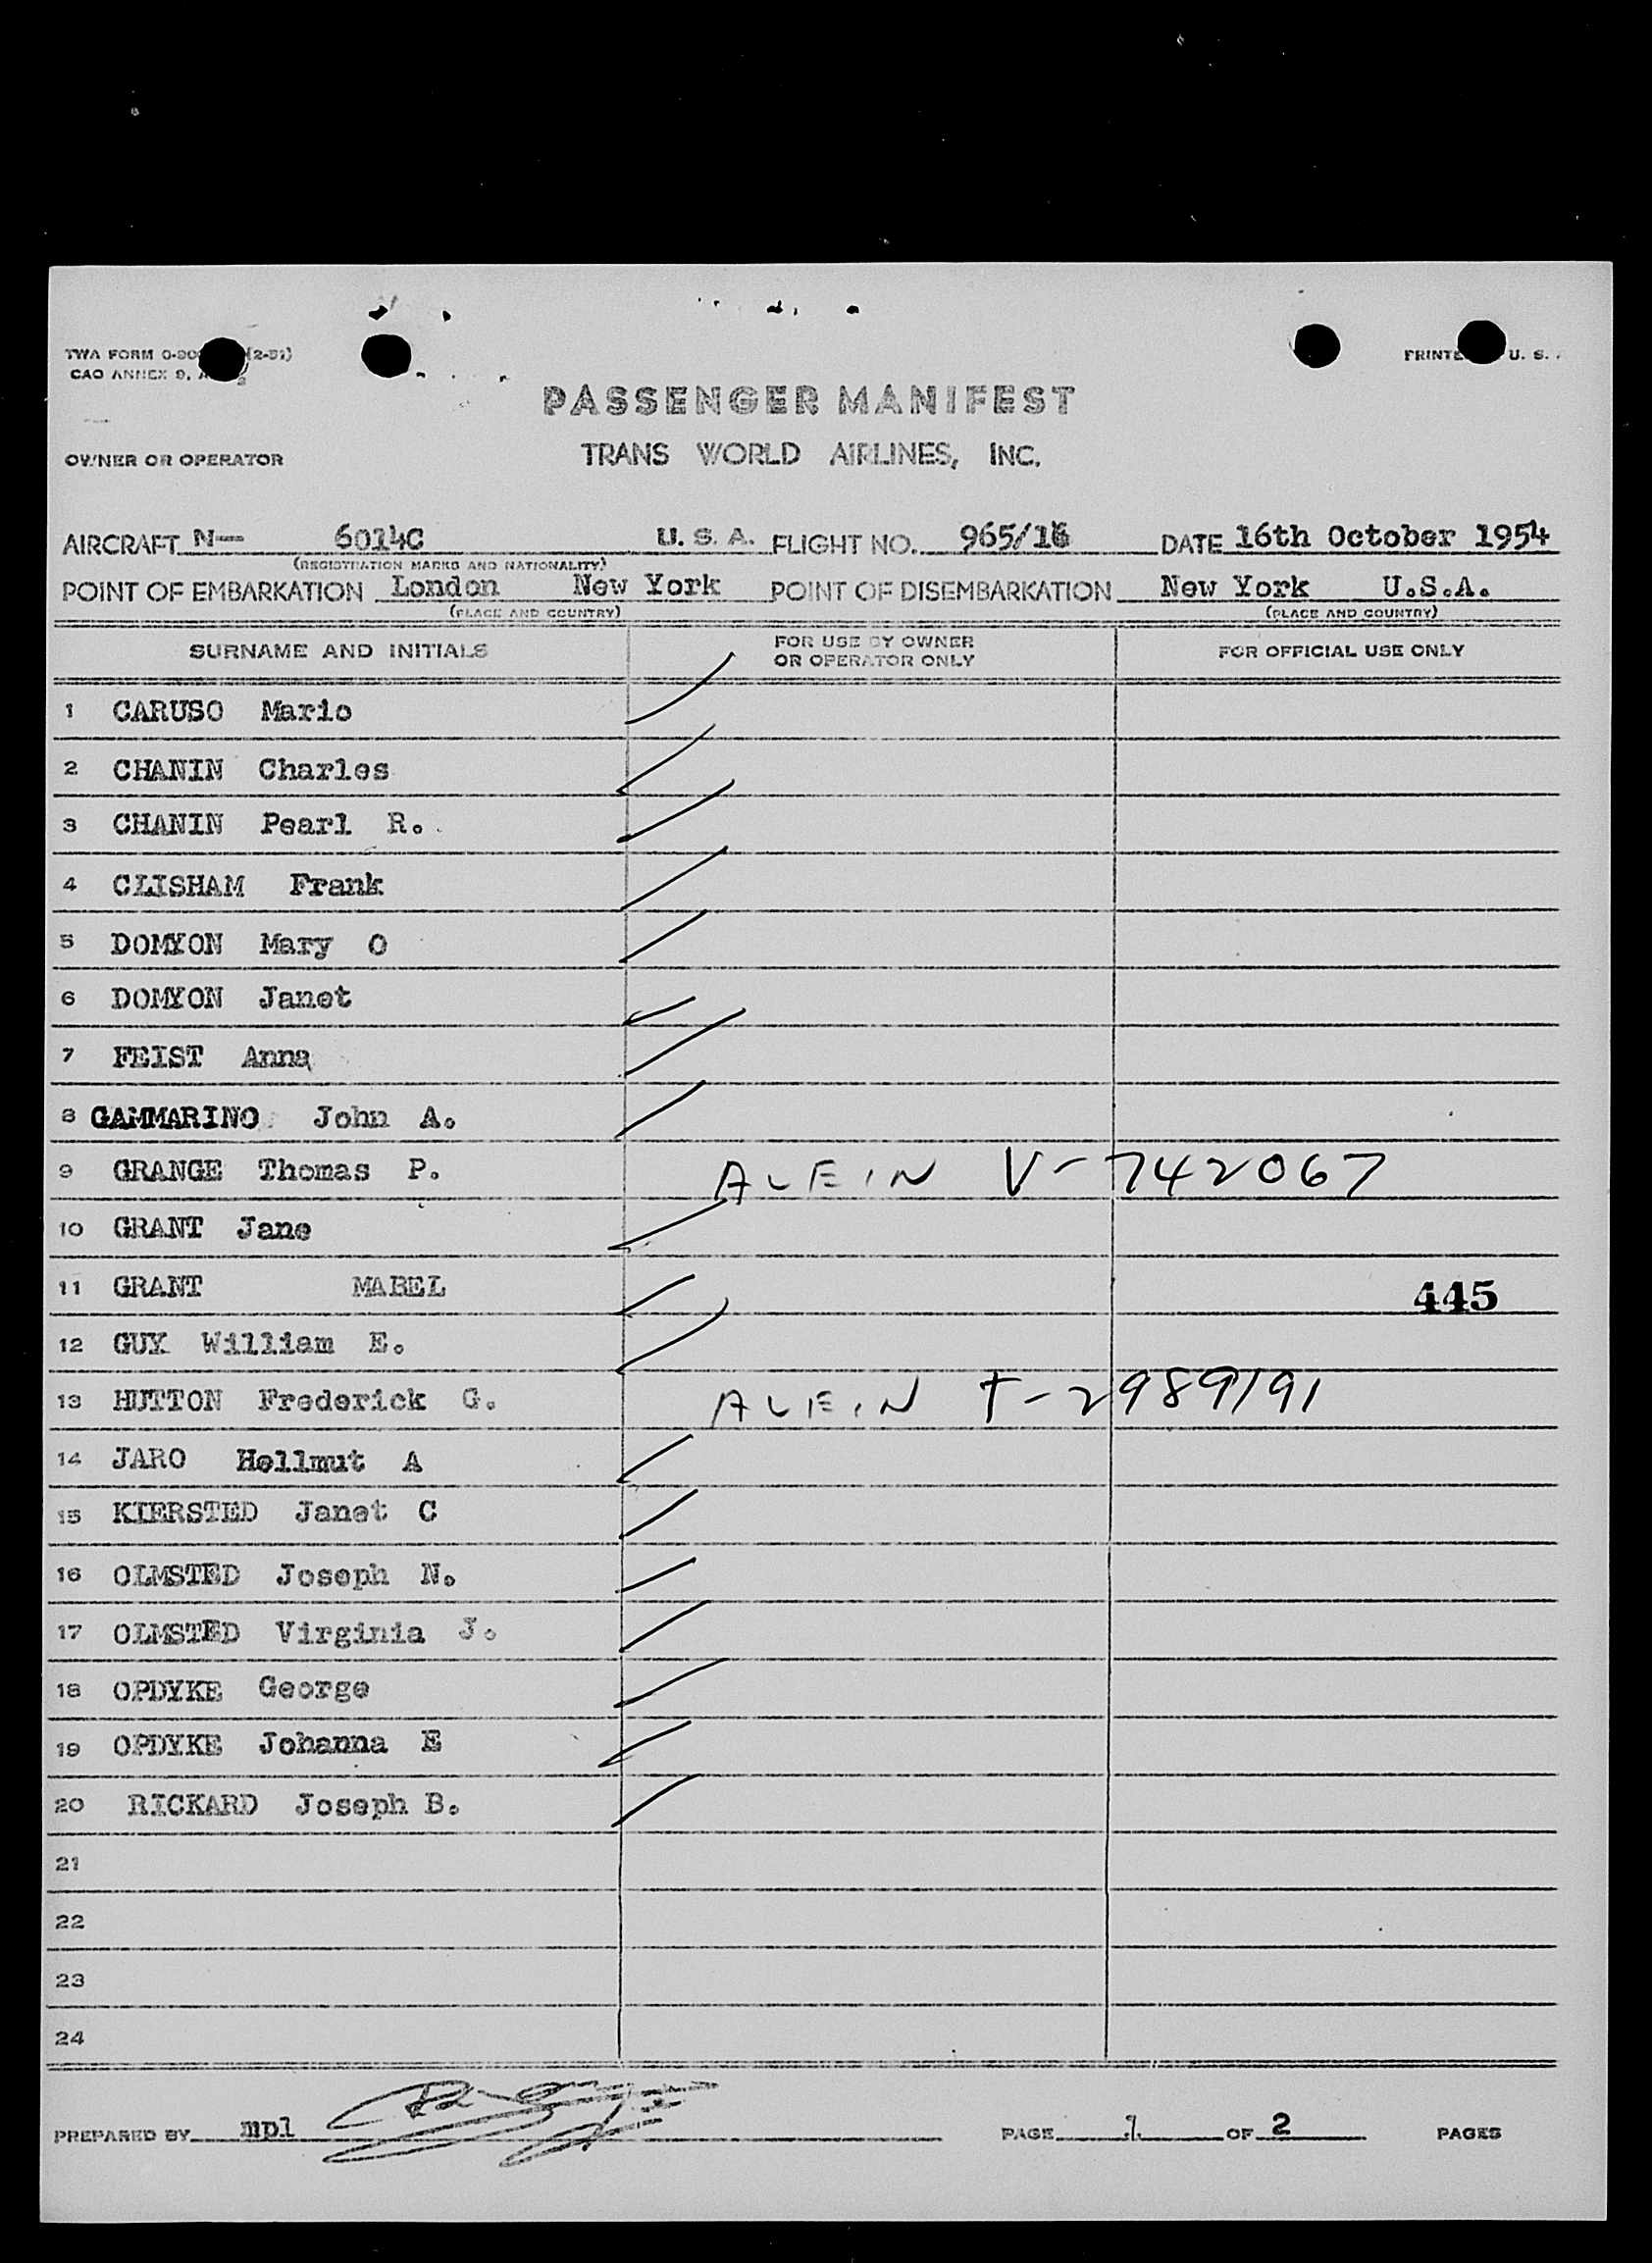 TWA FORM 0-90 (2-51)
PRINTE U. S.
CAO ANNEX 9,
PASSENGER MANIFEST
OWNER OR OPERATOR TRANS WORLD AIRLINES, INC.
AIRCRAFT N— 6014C U. S. A. FLIGHT NO. 965/16 DATE 16th October 1954
(REGISTRATION MARKS AND NATIONALITY)
POINT OF EMBARKATION London New York POINT OF DISEMBARKATION New York U.S.A.
(PLACE AND COUNTRY) (PLACE AND COUNTRY)
SURNAME AND INITIALS FOR USE BY OWNER OR OPERATOR ONLY FOR OFFICIAL USE ONLY
1 CARUSO Mario
2 CHANIN Charles
3 CHANIN Pearl R.
4 CLISHAM Frank
5 DOMYON Mary O
6 DOMYON Janet
7 FEIST Anna
8 GAMMARINO John A.
9 GRANGE Thomas P. ALEIN V-742067
10 GRANT Jane
11 GRANT MABEL 445
12 GUY William E.
13 HUTTON Frederick G. ALEIN T-2989191
14 JARO Hellmut A
15 KIERSTED Janet C
16 OLMSTED Joseph N.
17 OLMSTED Virginia J.
18 OPDYKE George
19 OPDYKE Johanna E
20 RICKARD Joseph B.
21
22
23
24
PREPARED BY mpl PAGE 1 OF 2 PAGES